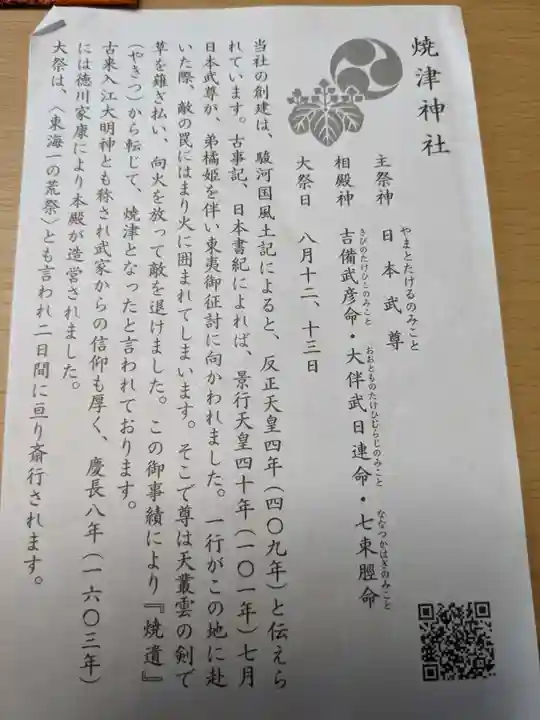 焼津神社
主祭神 日本武尊
やまとたけるのみこと
相殿神 吉備武彦命・大伴武日連命・七束脛命
きびのたけひこのみこと おおとものたけひむらじのみこと ななつかはぎのみこと
大祭日 八月十二、十三日
当社の創建は、駿河国風土記によると、反正天皇四年(四〇九年)と伝えら
れています。古事記、日本書紀によれば、景行天皇四十年(一〇一年)七月
日本武尊が、弟橘姫を伴い東夷御征討に向かわれました。一行がこの地に赴
いた際、敵の罠にはまり火に囲まれてしまいます。そこで尊は天叢雲の剣で
草を薙ぎ払い、向火を放って敵を退けました。この御事績により『焼遺』
(やきつ)から転じて、焼津となったと言われております。
古来入江大明神とも称され武家からの信仰も厚く、慶長八年(一六〇三年)
には徳川家康により本殿が造営されました。
大祭は、〈東海一の荒祭〉とも言われ二日間に亘り斎行されます。